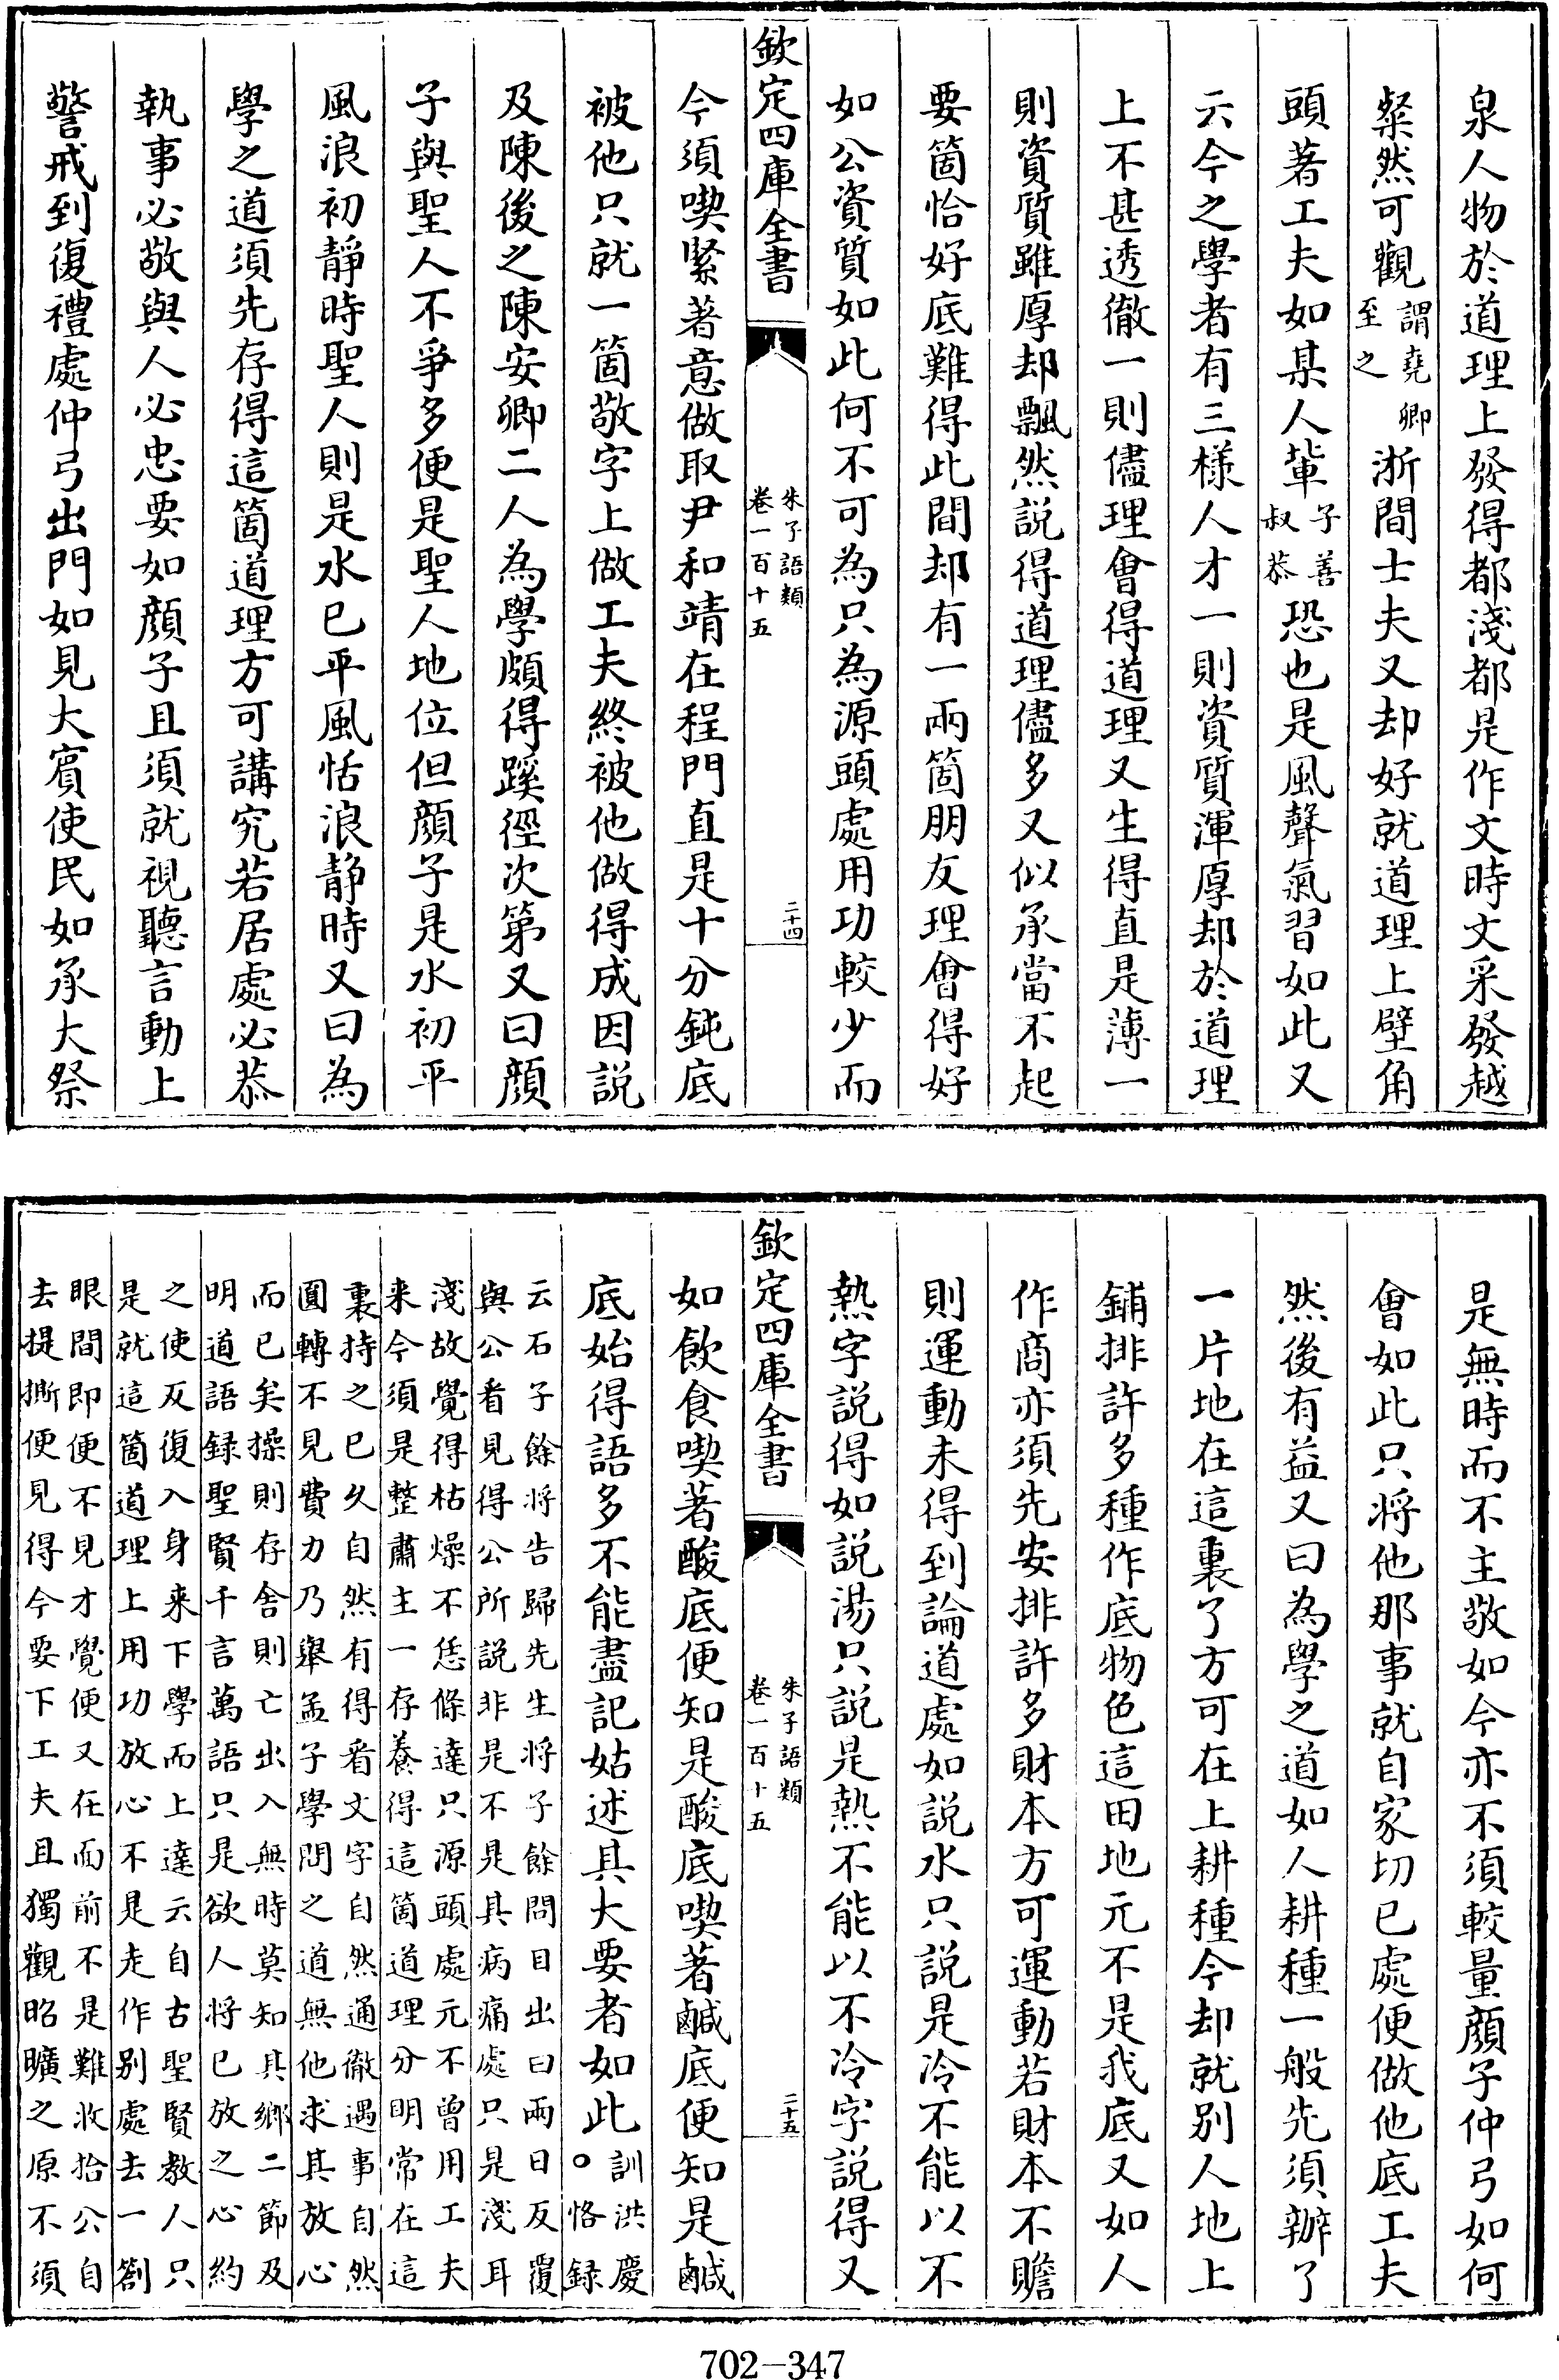 泉人物於道理上發得都淺都是作文時文采發越
粲然可觀謂堯卿至之浙間士夫又却好就道理上壁角
頭著工夫如某人輩子善叔恭恐也是風聲氣習如此又
云今之學者有三樣人才一則資質渾厚却於道理
上不甚透徹一則儘理會得道理又生得直是薄一
則資質雖厚却飄然說得道理儘多又似承當不起
要箇恰好底難得此間却有一兩箇朋友理會得好
如公資質如此何不可為只為源頭處用功較少而
欽定四庫全書
朱子語類
卷一百十五
二十四
今須喫緊著意做取尹和靖在程門直是十分鈍底
被他只就一箇敬字上做工夫終被他做得成因說
及陳後之陳安卿二人為學頗得蹊徑次第又曰顔
子與聖人不爭多便是聖人地位但顔子是水初平
風浪初靜時聖人則是水已平風恬浪静時又曰為
學之道須先存得這箇道理方可講究若居處必恭
執事必敬與人必忠要如顔子且須就視聽言動上
警戒到復禮處仲弓出門如見大賓使民如承大祭
是無時而不主敬如今亦不須較量顔子仲弓如何
會如此只將他那事就自家切已處便做他底工夫
然後有益又曰為學之道如人耕種一般先須辦了
一片地在這裏了方可在上耕種今却就别人地上
鋪排許多種作底物色這田地元不是我底又如人
作商亦須先安排許多財本方可運動若財本不贍
則運動未得到論道處如說水只說是冷不能以不
熱字說得如說湯只說是熱不能以不冷字說得又
欽定四庫全書
朱子語類
卷一百十五
二十五
如飲食喫著酸底便知是酸底喫著鹹底便知是鹹
底始得語多不能盡記姑述其大要者如此○訓洪慶恪録
云石子餘將告歸先生將子餘問目出曰兩日反覆
與公看見得公所說非是不是其病痛處只是淺耳
淺故覺得枯燥不恁條達只源頭處元不曾用工夫
来今須是整肅主一存養得這箇道理分明常在這
裏持之已久自然有得看文字自然通徹遇事自然
圓轉不見費力乃舉孟子學問之道無他求其放心
而已矣操則存舍則亡出入無時莫知其鄉二節及
明道語録聖賢千言萬語只是欲人將已放之心約
之使反復入身来下學而上達云自古聖賢教人只
是就這箇道理上用功放心不是走作别處去一劄
眼間即便不見才覺便又在面前不是難收拾公自
去提撕便見得今要下工夫且獨觀昭曠之原不須
702-347